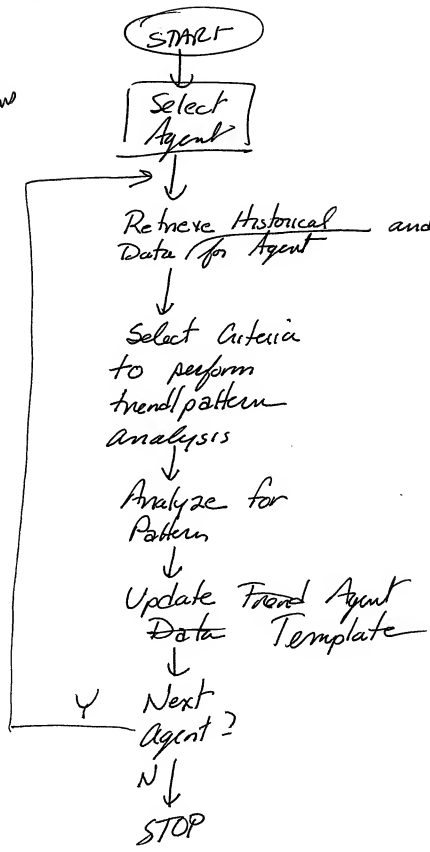 START
Select
Agent
Retrieve Historical and
Data for Agent
Select Criteria
to perform
trend/pattern
analysis
Analyze for
Pattern
Update Trend Agent
Data Template
Y Next
Agent?
N
STOP